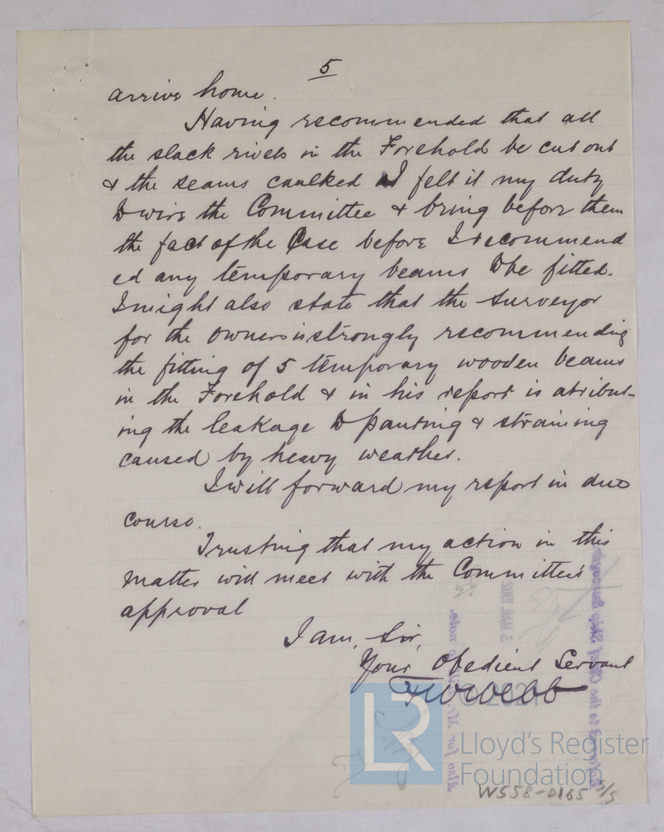 5
arrive home.
Having recommended that all
the slack rivets in the Forehold be cut out
& the seams caulked I felt it my duty
to wire the Committee & bring before them
the fact of the Case before I recommend
ed any temporary beams to be fitted.
I might also state that the Surveyor
for the owners is strongly recommending
the fitting of 5 temporary wooden beams
in the Forehold & in his report is atribut-
ing the leakage to panting & straining
caused by heavy weather.
I will forward my report in due
course.
Trusting that my action in this
matter will meet with the Committee's
approval
I am, Sir,
Your Obedient Servant
Webb
© 2021
LR
Lloyd's Register
Foundation
W558-0165 5/5